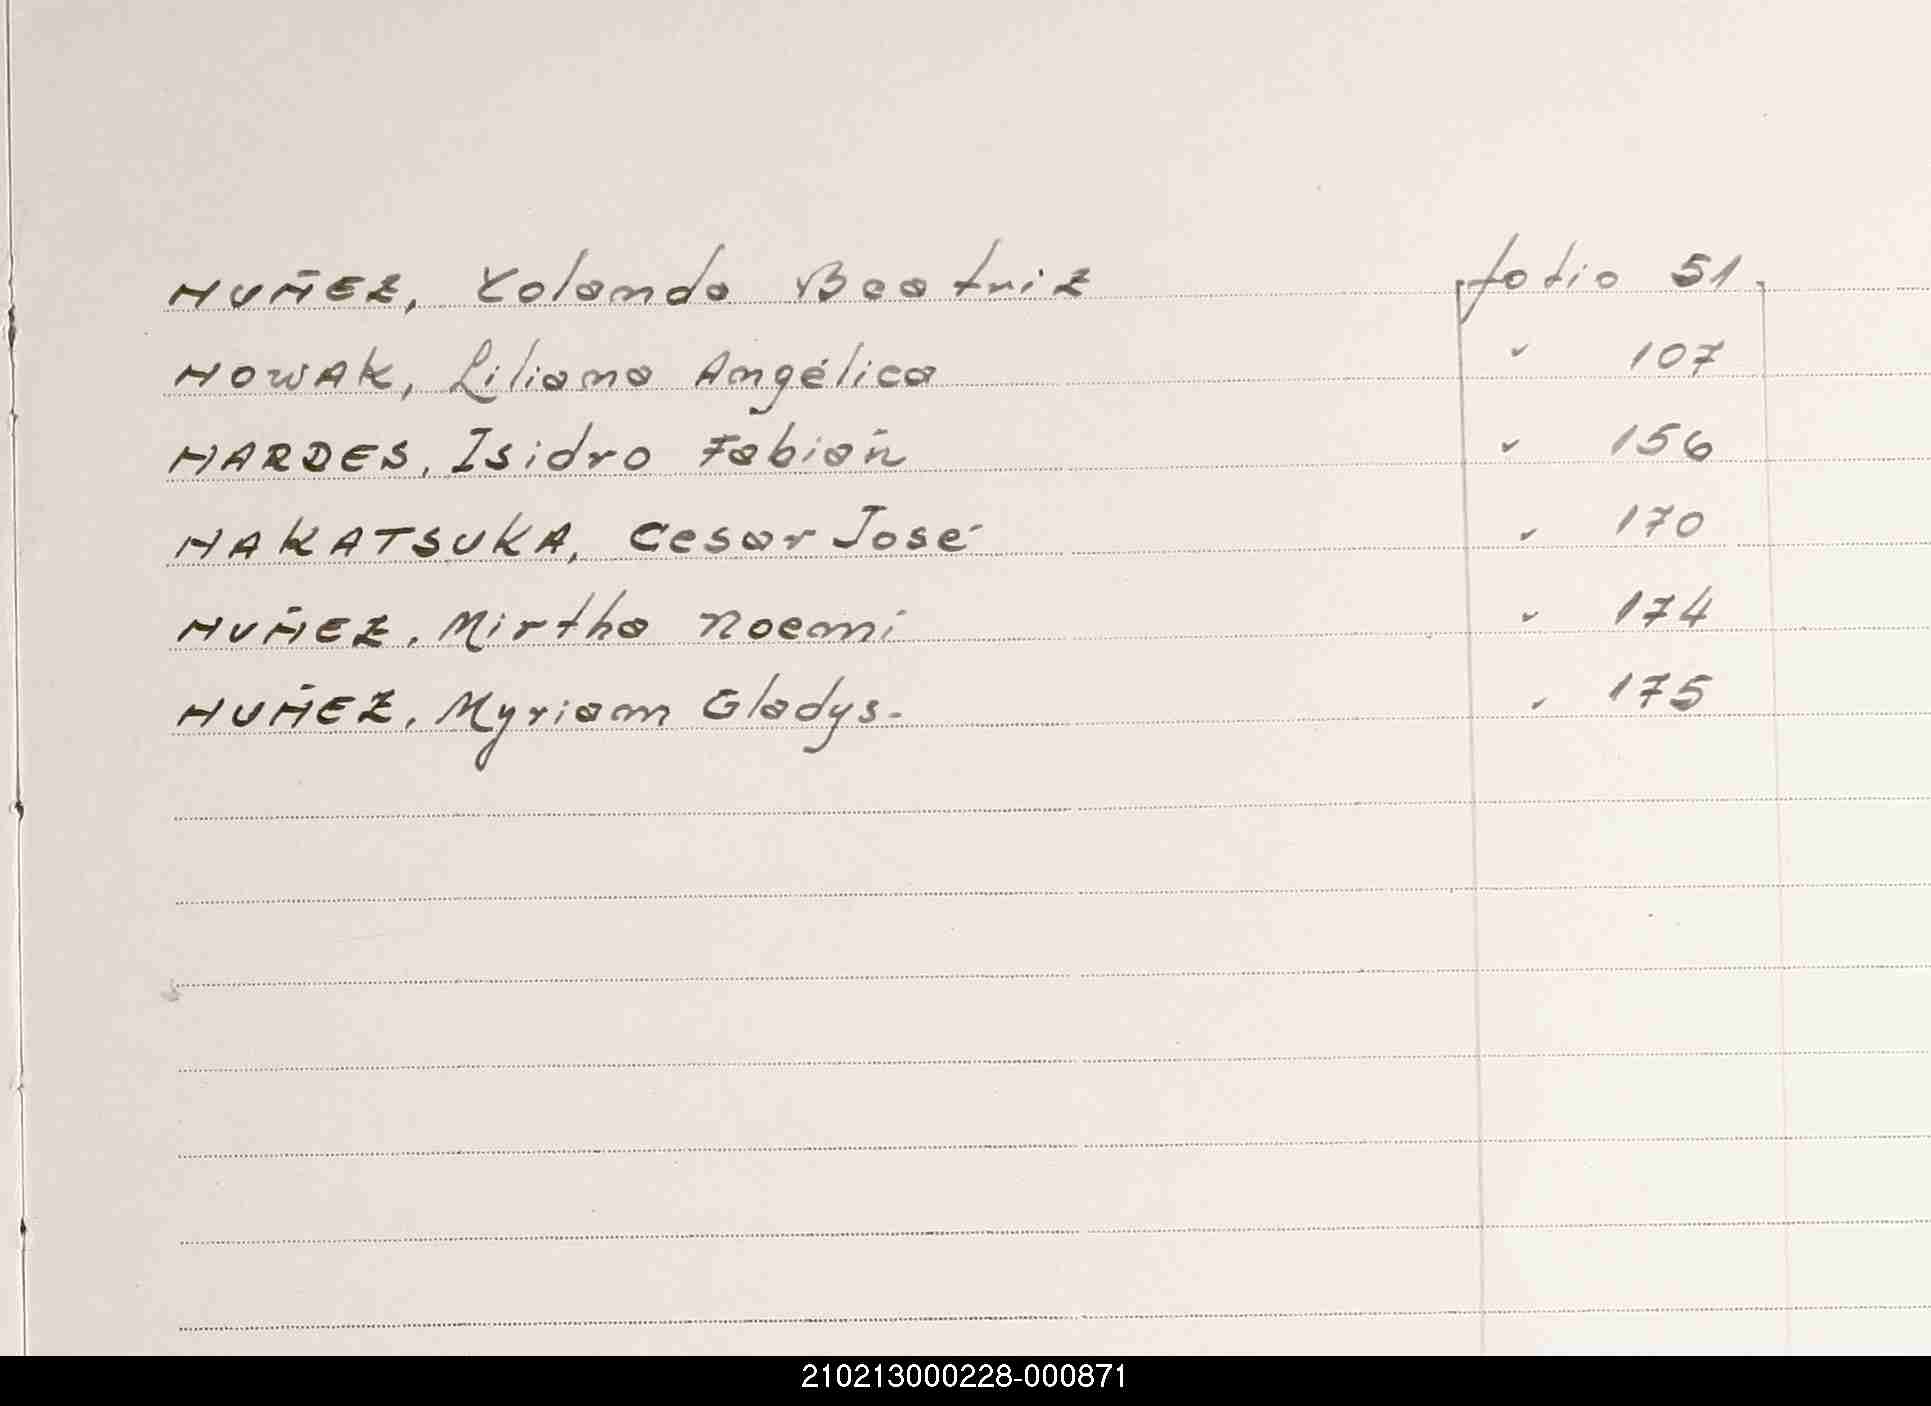 NUÑEZ, Yolanda Beatriz folio 51
NOWAK, Liliana Angélica " 107
NARDES, Isidro Fabián " 156
NAKATSUKA, Cesar José " 170
NUÑEZ, Mirtha Noemi " 174
NUÑEZ, Myriam Gladys.- " 175
210213000228-000871